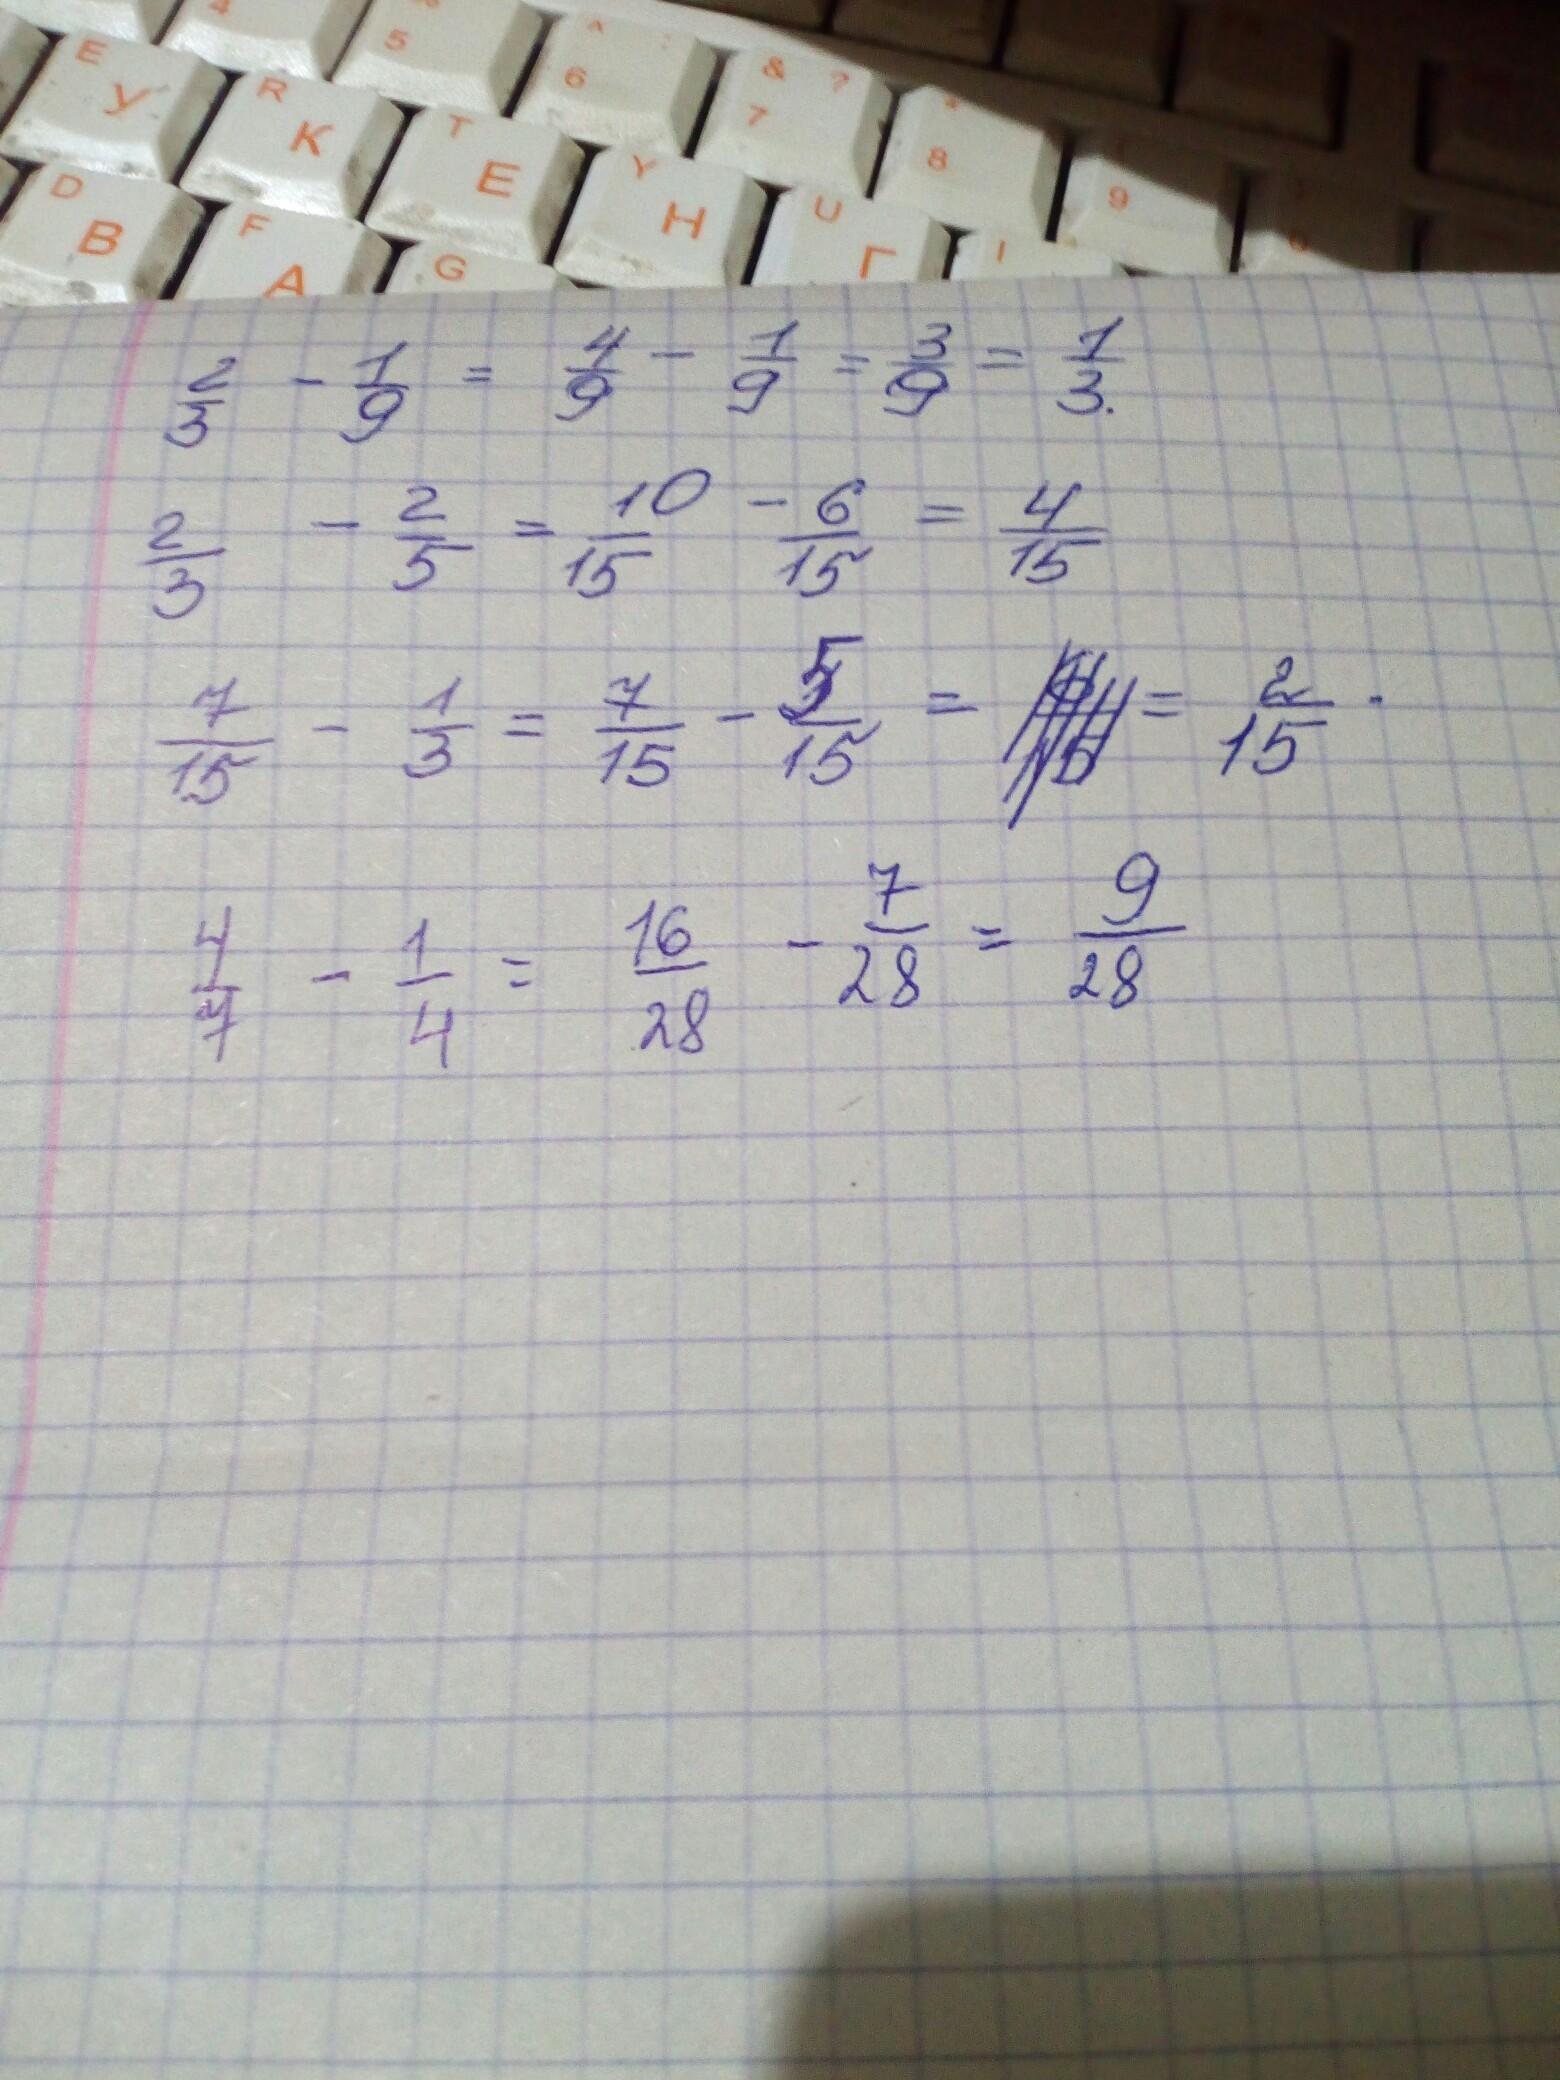 4 5 ^ : 6 & ? 7 * 8 9
E У R К T Е Y Н U Г I
D В F А G
2/3 - 1/9 = 4/9 - 1/9 = 3/9 = 1/3.
2/3 - 2/5 = 10/15 - 6/15 = 4/15
7/15 - 1/3 = 7/15 - 5/15 = = 2/15 .
4/7 - 1/4 = 16/28 - 7/28 = 9/28